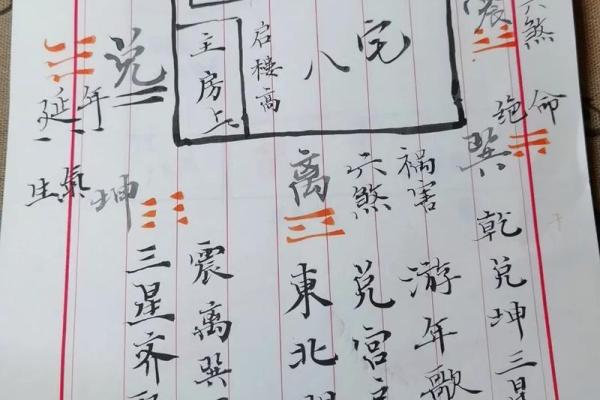 六煞
震
绝命
巽
八宅
启楼高
主房占
兑
延年
生氣
坤
离
六煞
祸害
乾兑坤三星
游年歌
兑宮
東北
震离巽
三星齐